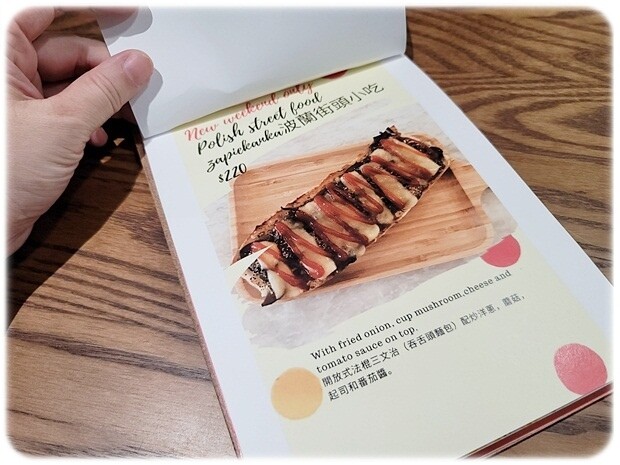 New weekend only
Polish street food
zapiekanka波蘭街頭小吃
$220
With fried onion, cup mushroom,cheese and
tomato sauce on top.
開放式法棍三文治（吞舌頭麵包）配炒洋蔥，蘑菇，
起司和番茄醬。